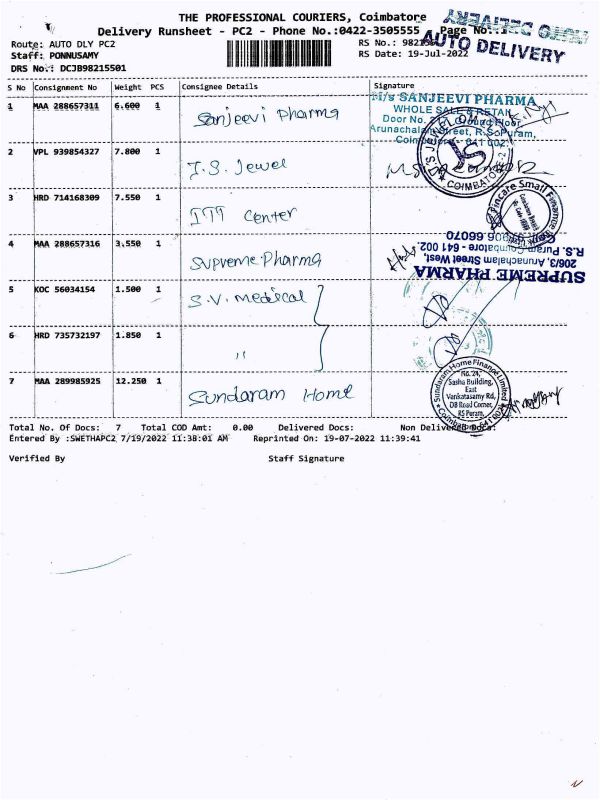 THE PROFESSIONAL COURIERS, Coimbatore
Delivery Runsheet - PC2 - Phone No.:0422-3505555 Page No.:1
AUTO DELIVERY
AUTO DELIVERY
Route: AUTO DLY PC2
RS No.:
Staff: PONNUSAMY
RS Date: 19-Jul-2022
DRS No.: DCJB98215501
S No Consignment No Weight PCS Consignee Details Signature
1 MAA 288657311 6.600 1 Sanjeevi Pharma
M/s SANJEEVI PHARMA
WHOLE SALE & RETAIL
Door No. Ground Floor,
Arunachalam Street, R.S. Puram,
2 VPL 939854327 7.800 1 J.S. Jewel
JS
COIMBATORE-2
3 HRD 714168309 7.550 1 ITI Center
Fincare Small Finance
4 MAA 288657316 3.550 1 Supreme Pharma
SUPREME PHARMA
206/3, Arunachalam Street West,
R.S. Puram Coimbatore - 641 002.
66070
5 KOC 56034154 1.500 1 S.V. Medical
6 HRD 735732197 1.850 1 "
7 MAA 289985925 12.250 1 Sundaram Home
Sundaram Home Finance Limited
No. 24,
Sasha Building,
East
Venkatasamy Rd,
DB Road Corner,
RS Puram,
Total No. Of Docs: 7 Total COD Amt: 0.00 Delivered Docs: Non Delivered Docs:
Entered By :SWETHAPC2 7/19/2022 11:38:01 AM Reprinted On: 19-07-2022 11:39:41
Verified By Staff Signature